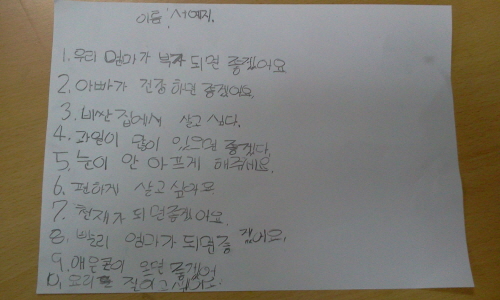 이름: 서예지.
1. 우리 엄마가 부자 되면 좋겠어요
2. 아빠가 진정하면 좋겠어요.
3. 비싼 집에서 살고 싶다.
4. 과일이 많이 있으면 좋겠다.
5. 눈이 안 아프게 해주세요.
6. 편하게 살고 싶어요
7. 천재가 되면좋겠어요.
8. 빨리 엄마가 되면좋겠어요.
9. 오면 좋겠어
10.